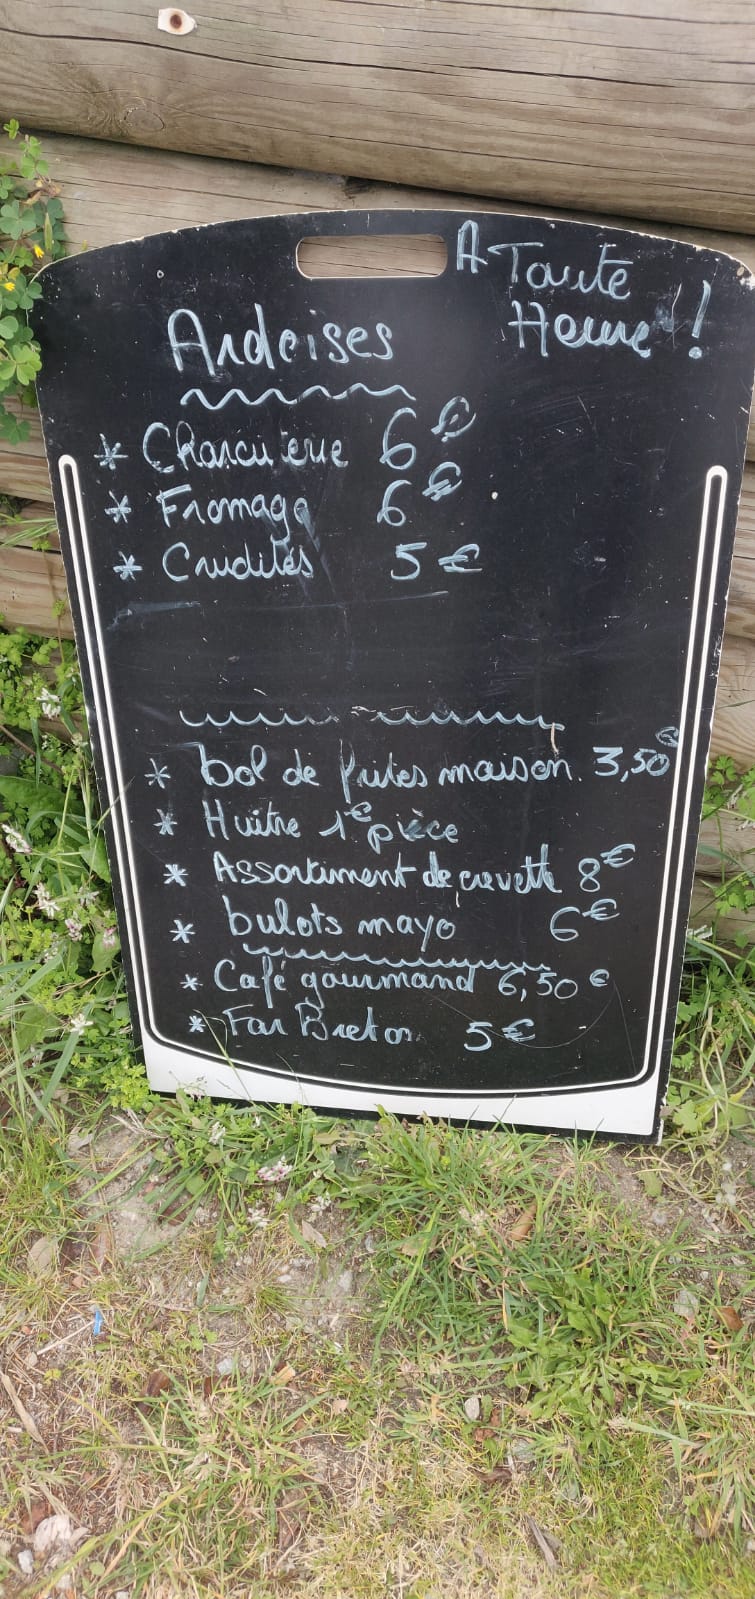 A Toute
Heure !
Ardoises
* Charcuterie 6€
* Fromage 6€
* Crudités 5€
* bol de frites maison. 3,50€
* Huitre 1€ pièce
* Assortiment de crevette 8€
* bulots mayo 6€
* Café gourmand 6,50€
* Far Breton 5€